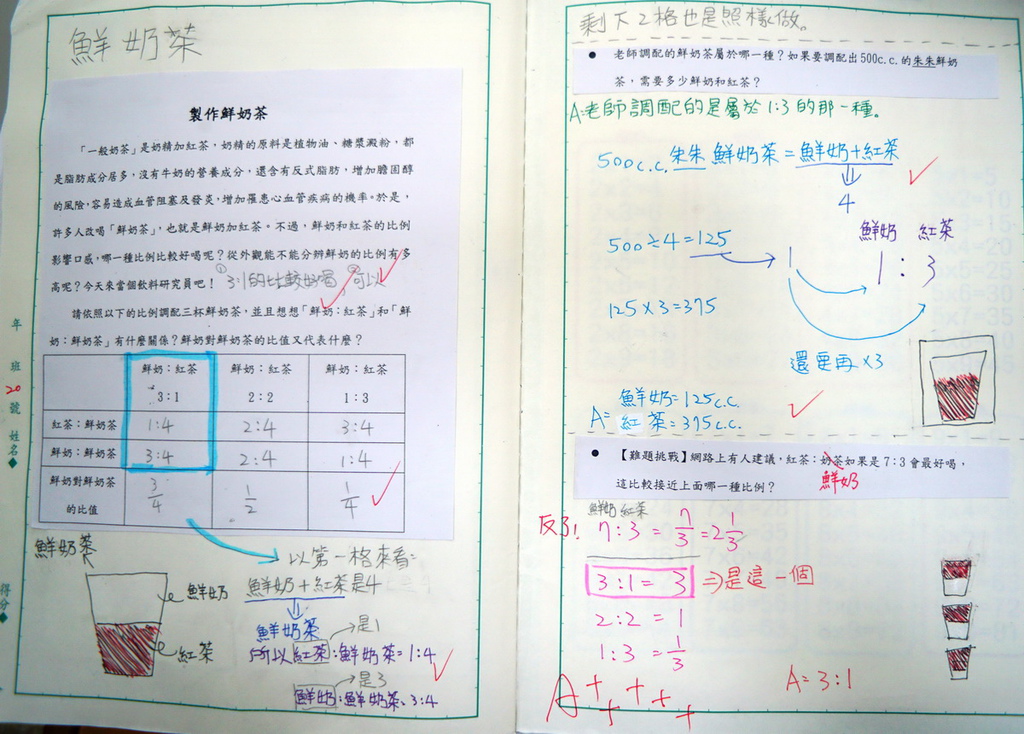 鮮奶茶
製作鮮奶茶
「一般奶茶」是奶精加紅茶,奶精的原料是植物油、糖漿澱粉,都
是脂肪成分居多,沒有牛奶的營養成分,還含有反式脂肪,增加膽固醇
的風險,容易造成血管阻塞及發炎,增加罹患心血管疾病的機率。於是,
許多人改喝「鮮奶茶」,也就是鮮奶加紅茶。不過,鮮奶和紅茶的比例
影響口感,哪一種比例比較好喝呢?從外觀能不能分辨鮮奶的比例有多
高呢?今天來當個飲料研究員吧!
①3:1的比較好喝,②可以
請依照以下的比例調配三杯鮮奶茶,並且想想「鮮奶:紅茶」和「鮮
奶:鮮奶茶」有什麼關係?鮮奶對鮮奶茶的比值又代表什麼?
鮮奶:紅茶 鮮奶:紅茶 鮮奶:紅茶
3:1 2:2 1:3
紅茶:鮮奶茶 1:4 2:4 3:4
鮮奶:鮮奶茶 3:4 2:4 1:4
鮮奶對鮮奶茶的比值 3/4 1/2 1/4
鮮奶茶
鮮奶
紅茶
以第一格來看:
鮮奶+紅茶是4
鮮奶茶
是1
所以紅茶:鮮奶茶=1:4
是3
鮮奶:鮮奶茶=3:4
年
班
20
號
姓名◆
得分◆
剩下2格也是照樣做。
● 老師調配的鮮奶茶屬於哪一種?如果要調配出500c.c.的朱朱鮮奶
茶,需要多少鮮奶和紅茶?
A=老師調配的是屬於1:3的那一種。
500c.c.朱朱鮮奶茶=鮮奶+紅茶
4
鮮奶 紅茶
500÷4=125 1 1:3
125×3=375
還要再×3
A=鮮奶=125c.c.
紅茶=375c.c.
● 【難題挑戰】網路上有人建議,紅茶:奶茶如果是7:3會最好喝,
鮮奶
這比較接近上面哪一種比例?
鮮奶 紅茶
反了! 7:3=7/3=2 1/3
3:1=3 ⇒是這一個
2:2=1
1:3=1/3
A=3:1
A+++++